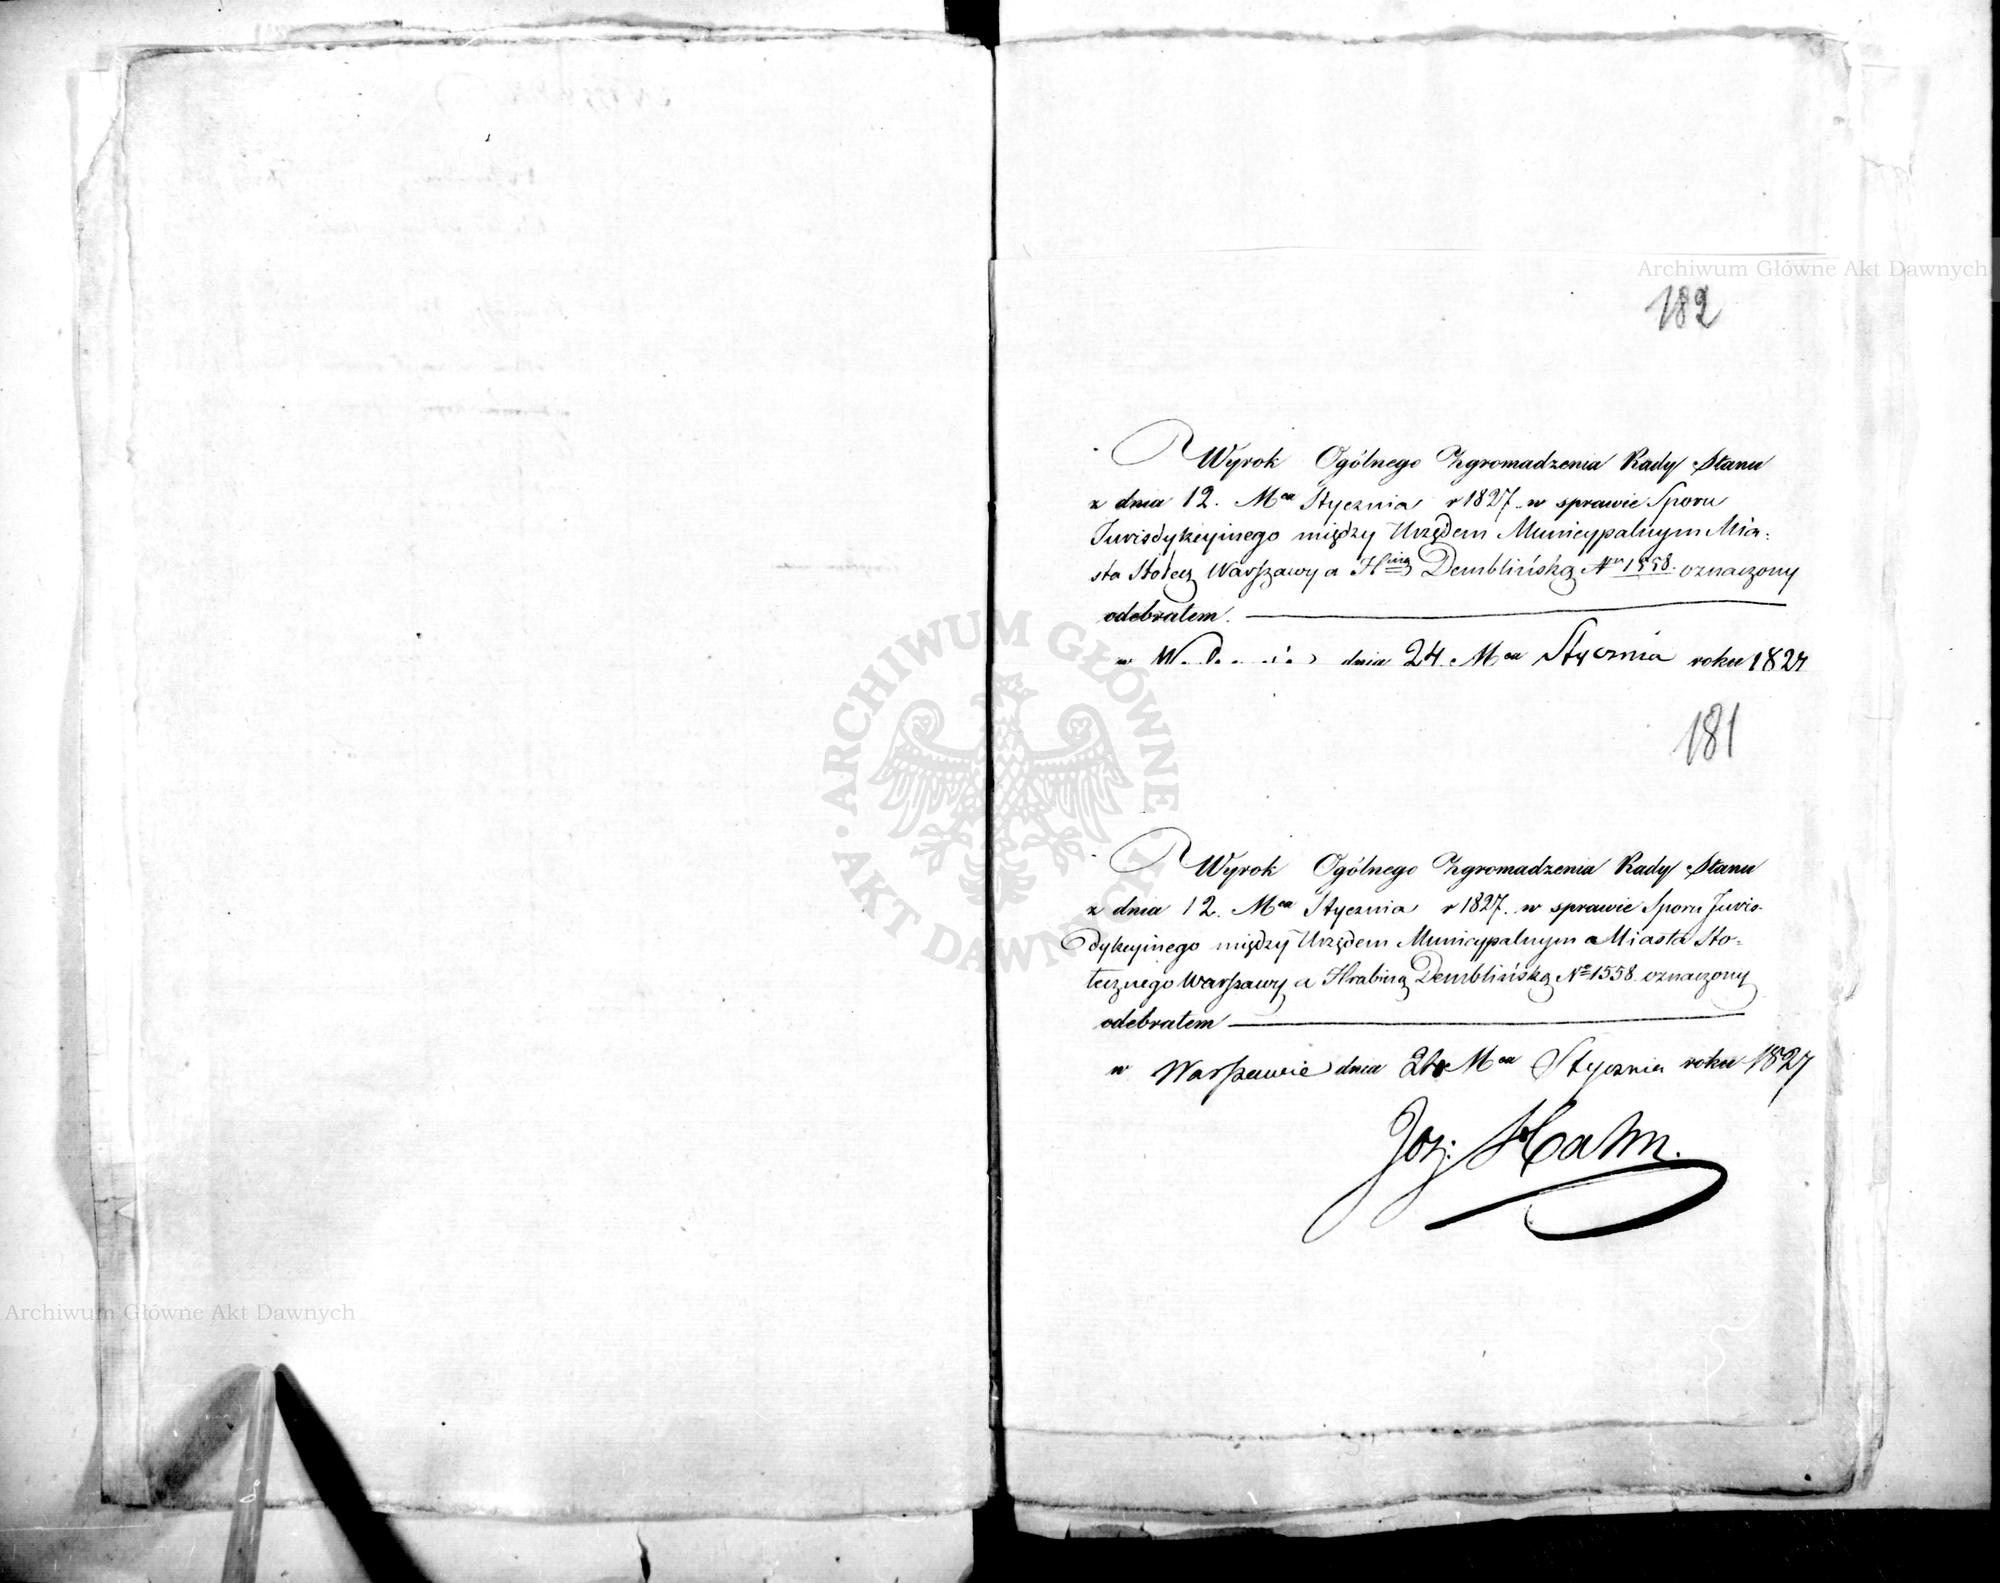 Archiwum Główne Akt Dawnych
182
Wyrok Ogólnego Zgromadzenia Rady Stanu
z dnia 12. Mca Stycznia r 1827. w sprawie Sporu
Jurisdykcyinego między Urzędem Municypalnym Mia:
sta Stołecz Warszawy a Hbiną Demblińską Nr 1558. oznaczony
odebrałem.
w dnia 24. Mca Stycznia roku 1827
181
Wyrok Ogólnego Zgromadzenia Rady Stanu
z dnia 12. Mca Stycznia r 1827. w sprawie Sporu Juris-
dykcyinego między Urzędem Municypalnym a Miasta Sto-
łecznego Warszawy a Hrabiną Demblińską No 1558. oznaczony
odebrałem
w Warszawie dnia 24 Mca Stycznia roku 1827
Hahn.
ARCHIWUM GŁÓWNE AKT DAWNYCH
Archiwum Główne Akt Dawnych